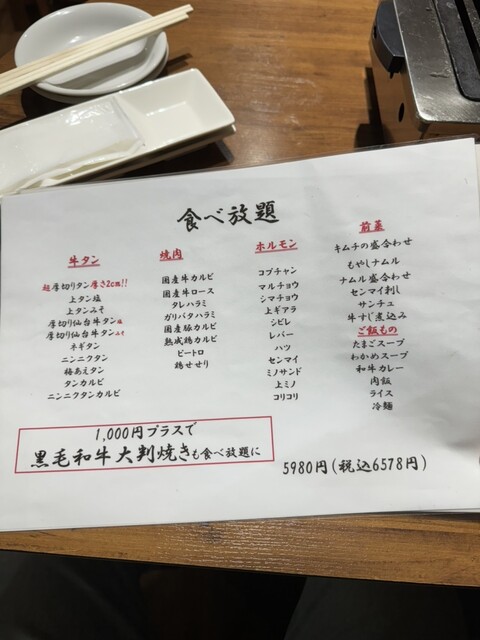 食べ放題
牛タン
超厚切りタン厚さ2cm!!
上タン塩
上タンみそ
厚切り仙台牛タン塩
厚切り仙台牛タンみそ
ネギタン
ニンニクタン
梅あえタン
タンカルビ
ニンニクタンカルビ
焼肉
国産牛カルビ
国産牛ロース
タレハラミ
ガリバタハラミ
国産豚カルビ
熟成鶏カルビ
ピートロ
鶏せせり
ホルモン
コプチャン
マルチョウ
シマチョウ
上ギアラ
シビレ
レバー
ハツ
センマイ
ミノサンド
上ミノ
コリコリ
前菜
キムチの盛合わせ
もやしナムル
ナムル盛合わせ
センマイ刺し
サンチュ
牛すじ煮込み
ご飯もの
たまごスープ
わかめスープ
和牛カレー
肉飯
ライス
冷麺
1,000円プラスで
黒毛和牛大判焼きも食べ放題に
5980円(税込6578円)